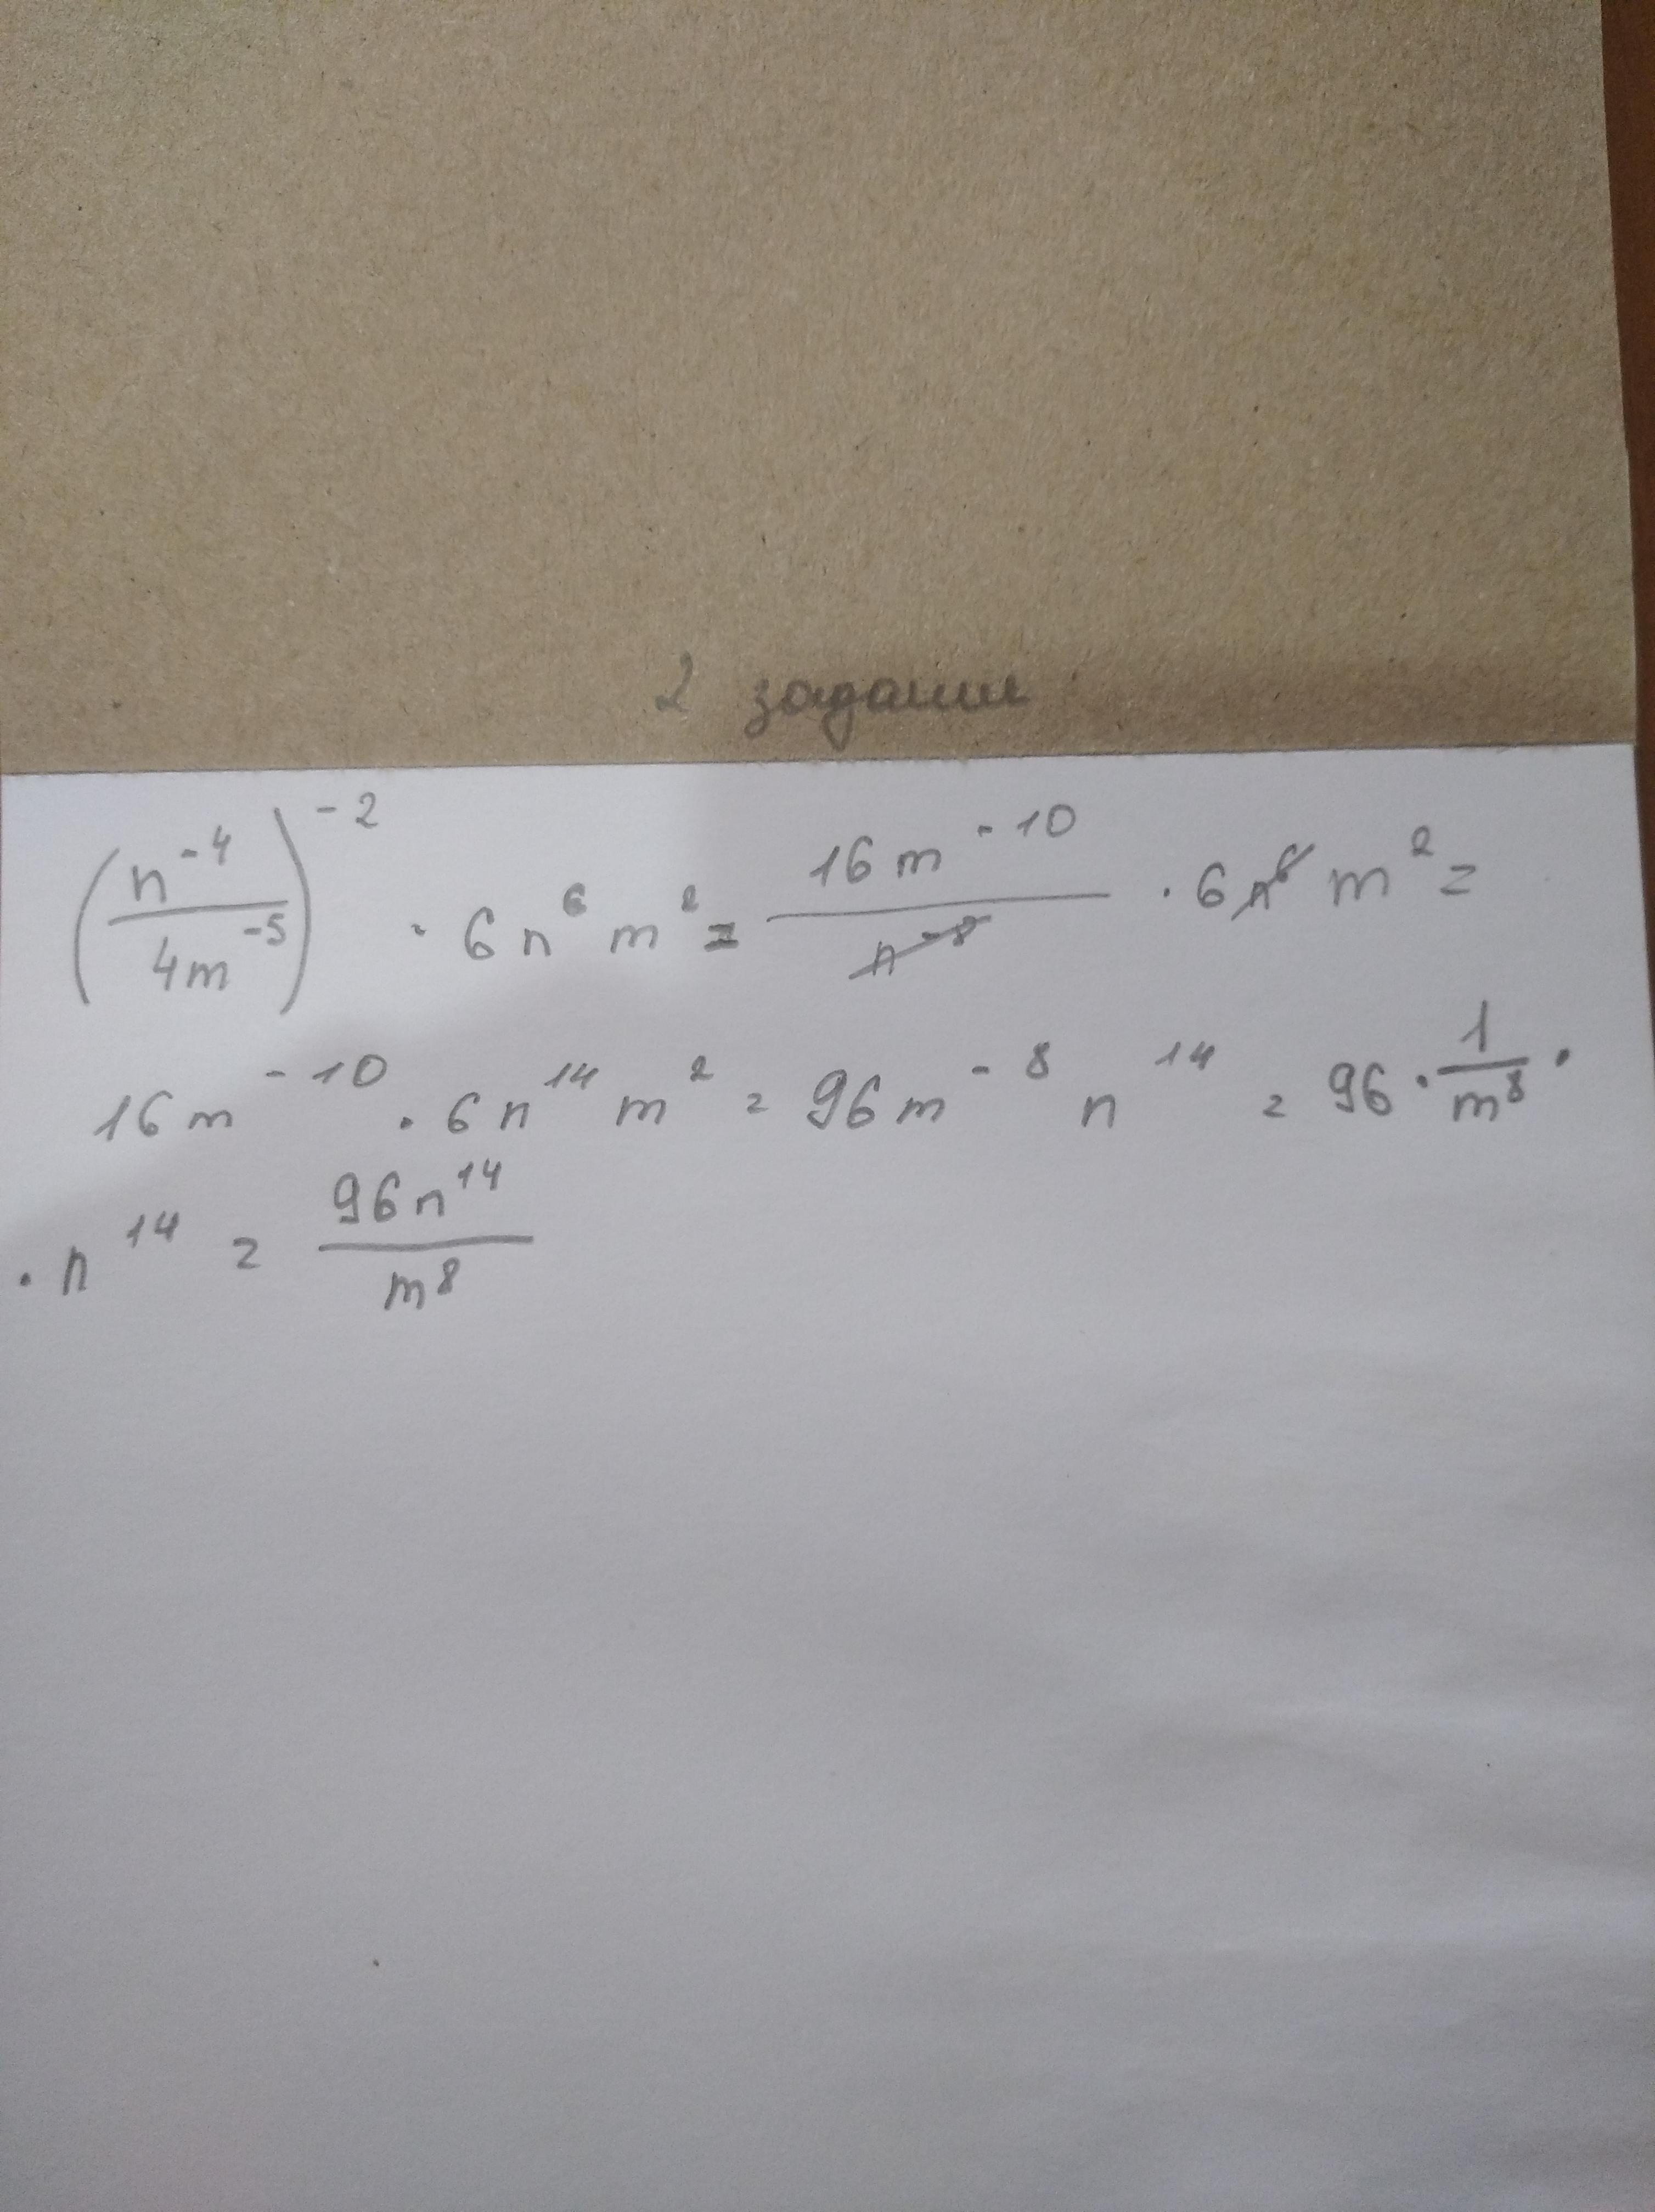 2 задание
(n⁻⁴/4m⁻⁵)⁻² · 6n⁶m² = 16m⁻¹⁰/n⁻⁸ · 6n⁶m² =
16m⁻¹⁰ · 6n¹⁴m² = 96m⁻⁸n¹⁴ = 96 · 1/m⁸ ·
· n¹⁴ = 96n¹⁴/m⁸